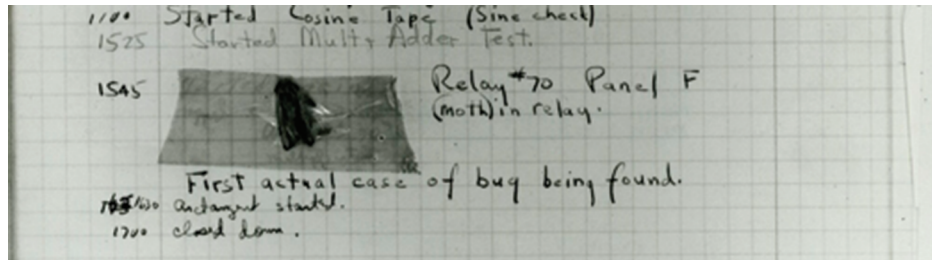 1100 Started Cosine Tape (Sine check)
1525 Started Mult + Adder Test.
1545 Relay #70 Panel F
(moth) in relay.
First actual case of bug being found.
1630 antangent started.
1700 closed down.